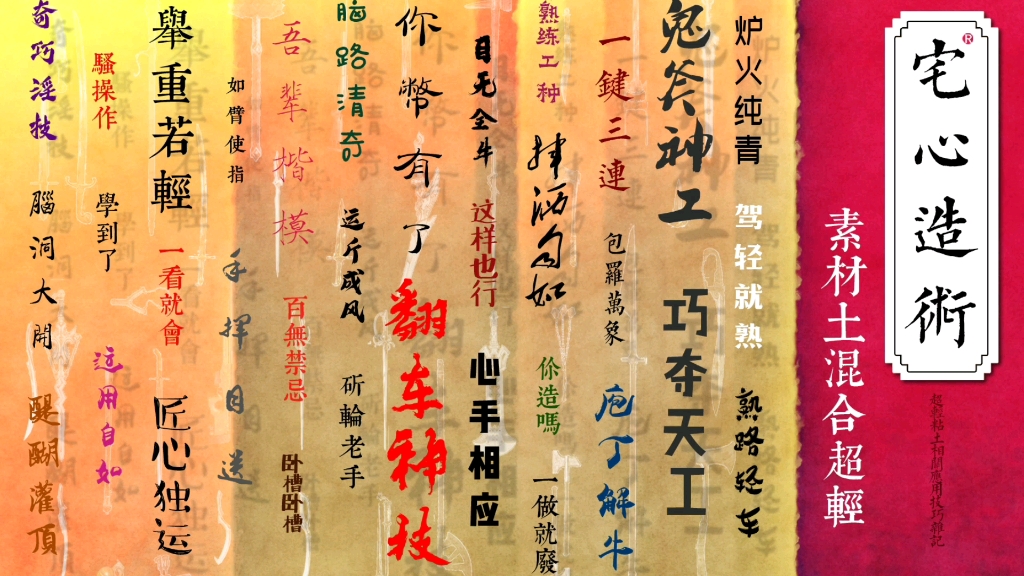 宅心造術
®
素材土混合超輕
超輕粘土相關應用技巧雜記
炉火纯青
驾轻就熟
熟路轻车
鬼斧神工
巧夺天工
一鍵三連
包羅萬象
庖丁解牛
熟练工种
挥洒自如
你造嗎
一做就廢
目无全牛
这样也行
心手相应
你幣有了
翻车神技
脑路清奇
运斤成风
斫輪老手
吾辈楷模
百無禁忌
卧槽卧槽
如臂使指
手揮目送
舉重若輕
一看就會
匠心独运
騷操作
學到了
运用自如
奇巧淫技
腦洞大開
醍醐灌頂